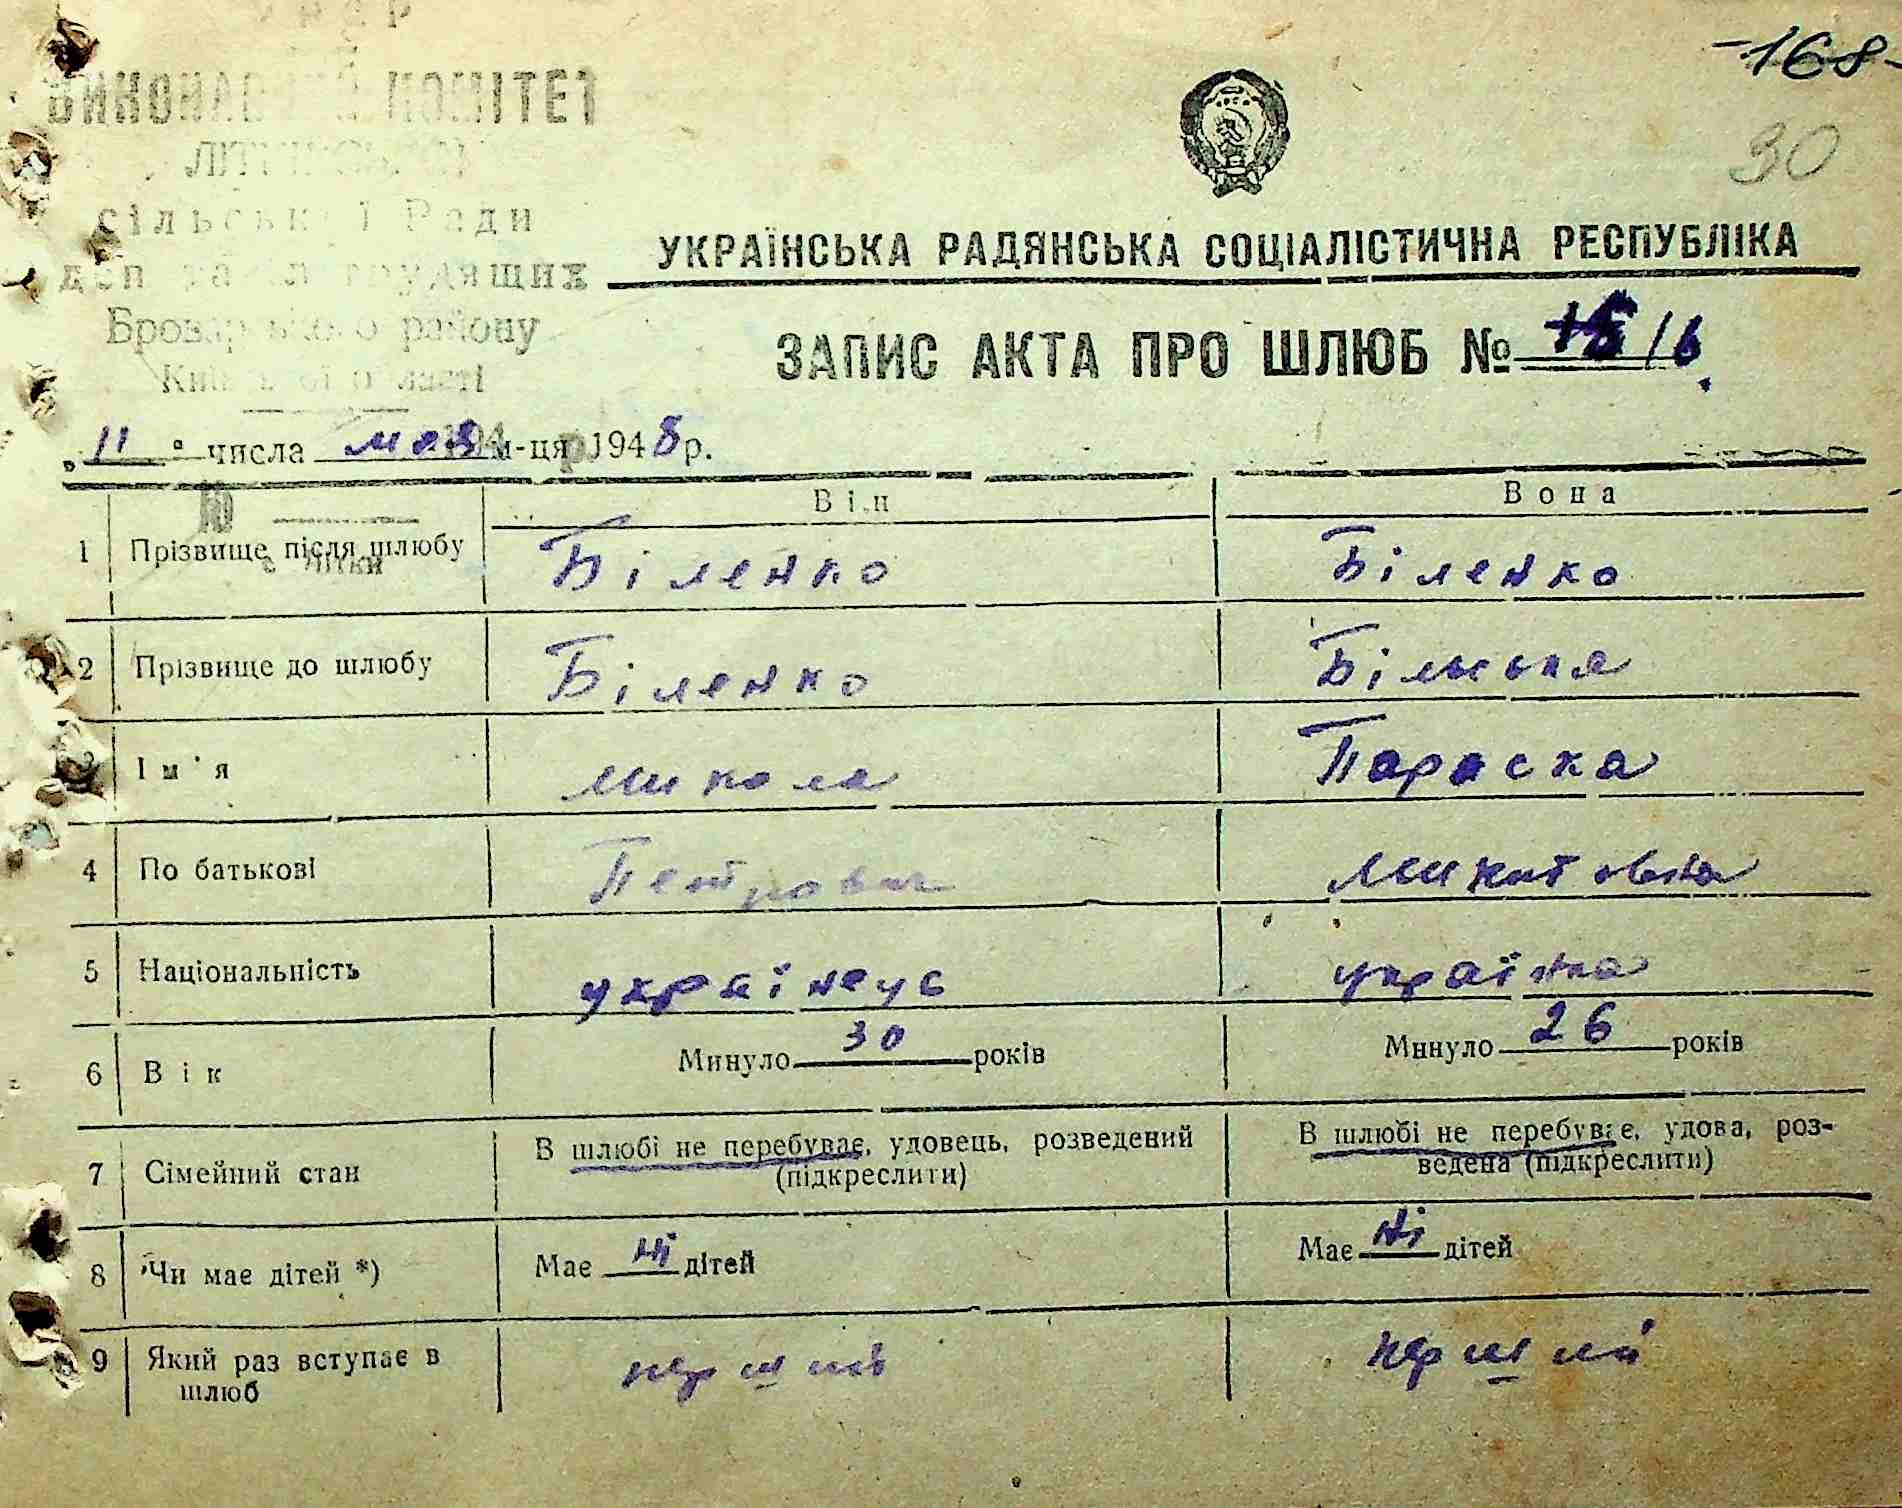 -168-
30
ВИКОНАВЧИЙ КОМІТЕТ
сільської Ради
деп трудящих
Броварського району
Київської області
УКРАЇНСЬКА РАДЯНСЬКА СОЦІАЛІСТИЧНА РЕСПУБЛІКА
ЗАПИС АКТА ПРО ШЛЮБ №
„11" числа мая м-ця 1948 р.
Він Вона
1 Прізвище після шлюбу Біленко Біленко
с Літки
2 Прізвище до шлюбу Біленко
3 Ім'я Микола Параска
4 По батькові Петрович Микитовна
5 Національність українець українка
6 Вік Минуло 30 років Минуло 26 років
7 Сімейний стан В шлюбі не перебуває, удовець, розведений (підкреслити) В шлюбі не перебуває, удова, роз-
ведена (підкреслити)
8 Чи має дітей *) Має ні дітей Має ні дітей
9 Який раз вступає в перший перший
шлюб